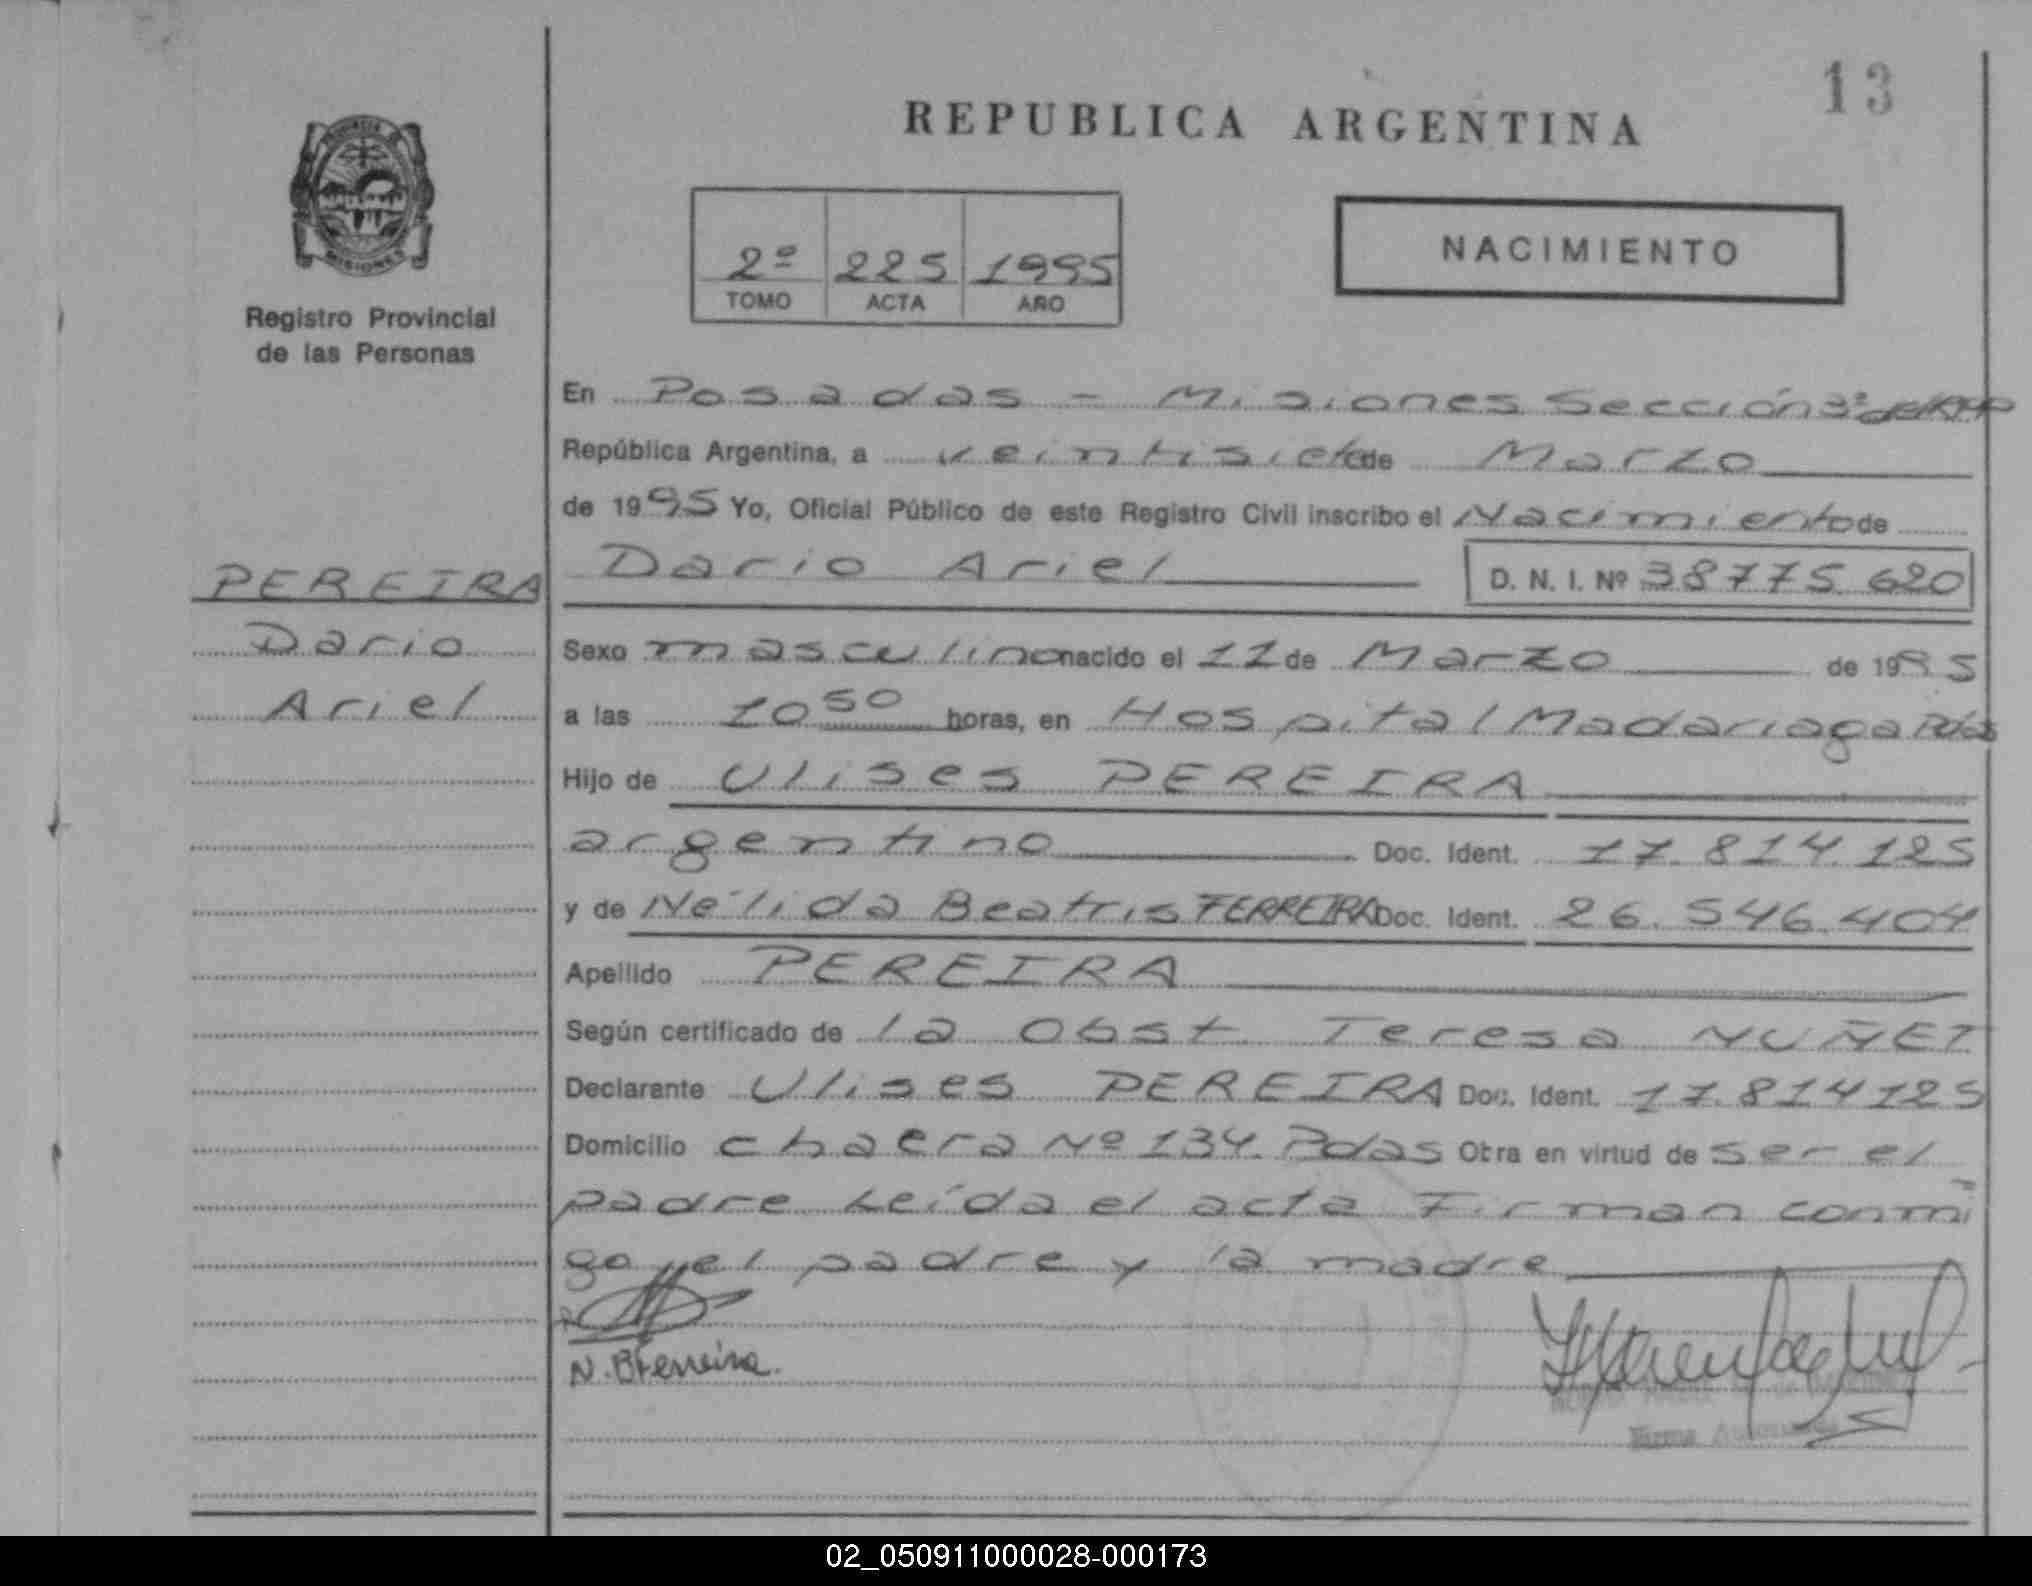 13
REPUBLICA ARGENTINA
NACIMIENTO
2º 225 1995
TOMO ACTA AÑO
MISIONES
Registro Provincial
de las Personas
PEREIRA
Dario
Ariel
En Posadas - Misiones Sección 3ª
República Argentina, a veintisiete de Marzo
de 1995 Yo, Oficial Público de este Registro Civil inscribo el Nacimiento de
Dario Ariel D. N. I. Nº 38775.620
Sexo masculino nacido el 11 de Marzo de 1995
a las 10 50 horas, en Hospital Madariaga Pdas
Hijo de Ulises PEREIRA
argentino Doc. Ident. 17.814.125
y de Nélida Beatris FERREIRA Doc. Ident. 26.546.404
Apellido PEREIRA
Según certificado de la Obst. Teresa NUÑEZ
Declarante Ulises PEREIRA Doc. Ident. 17.814125
Domicilio chacra Nº 134. Pdas Obra en virtud de ser el
padre Leída el acta Firman conmi
go, el padre y la madre
N. B Ferreira.
02_050911000028-000173